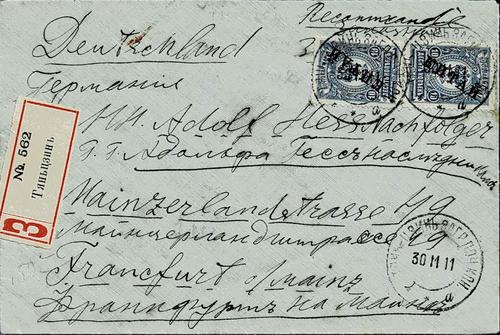 Recommandée
Deutschland
Германия
HH. Adolf Hess Nachfolger
Г.Г. Адольфа Гессъ наследники
Mainzerlandstrasse 49
Майнцерландштрассе 49
Francfurt o/Mainz
Франкфуртъ на Майне
№ 562
Тяньцзинь
З
10
10
КИТАЙ
30 11 11